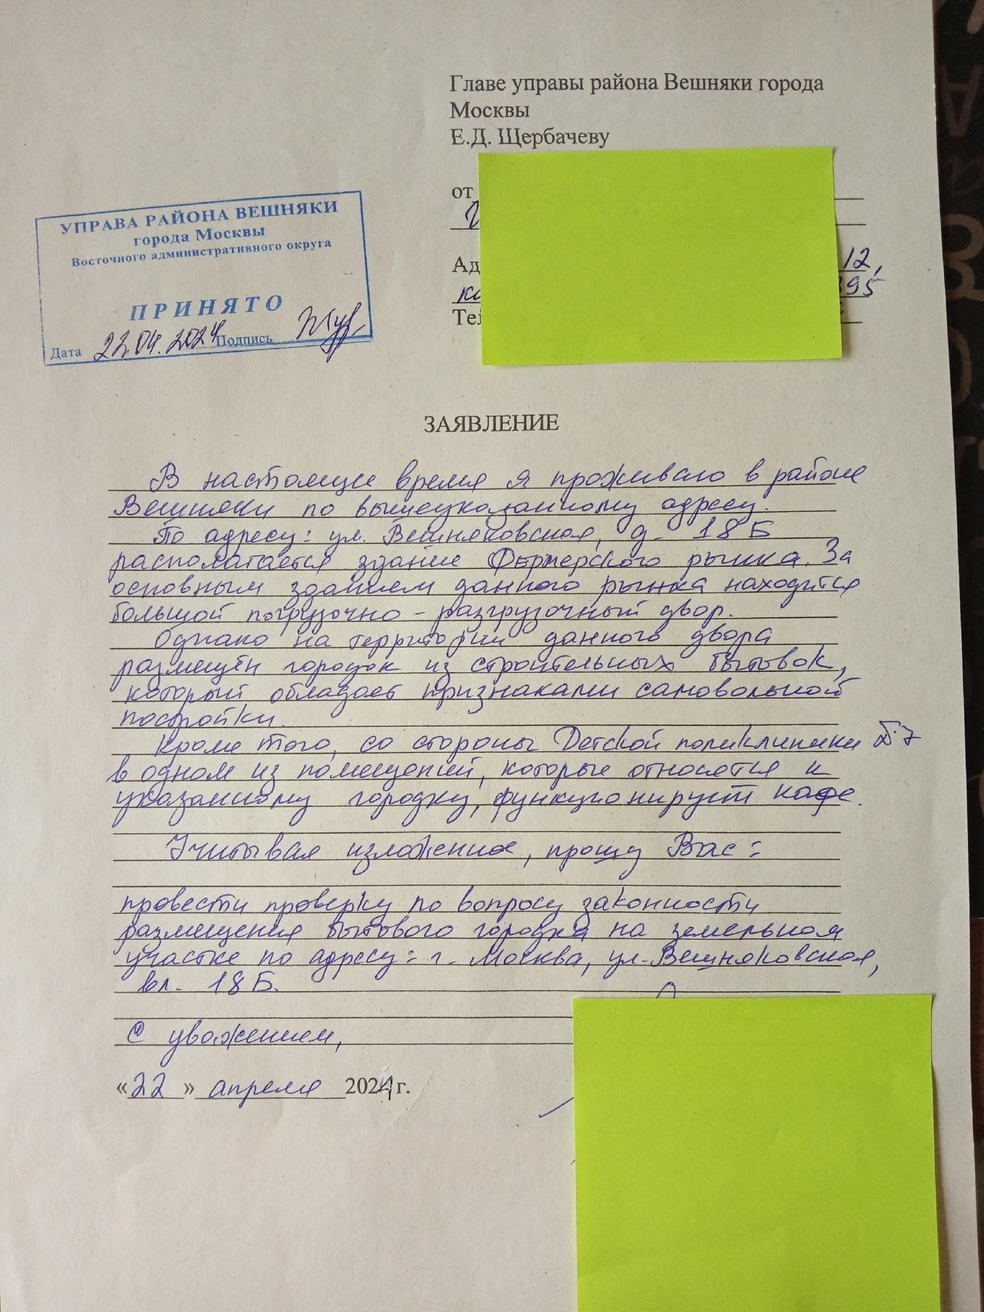 Главе управы района Вешняки города
Москвы
Е.Д. Щербачеву
от
Ад 12,
ка 395
Тел
УПРАВА РАЙОНА ВЕШНЯКИ
города Москвы
Восточного административного округа
ПРИНЯТО
Дата 22.04.2024 Подпись
ЗАЯВЛЕНИЕ
В настоящие время я проживаю в районе
Вешняки по вышеуказанному адресу.
По адресу: ул. Вешняковская, д. 18 Б
располагается здание Фермерского рынка. За
основным зданием данного рынка находится
большой погрузочно-разгрузочный двор.
Однако на территории данного двора
размещён городок из строительных бытовок,
который обладает признаками самовольной
постройки.
Кроме того, со стороны Детской поликлиники №7
в одном из помещений, которые относятся к
указанному городку, функционирует кафе.
Учитывая изложенное, прошу Вас:
провести проверку по вопросу законности
размещения бытового городка на земельном
участке по адресу: г. Москва, ул. Вешняковская,
вл. 18 Б.
С уважением,
«22» апреля 2024 г.